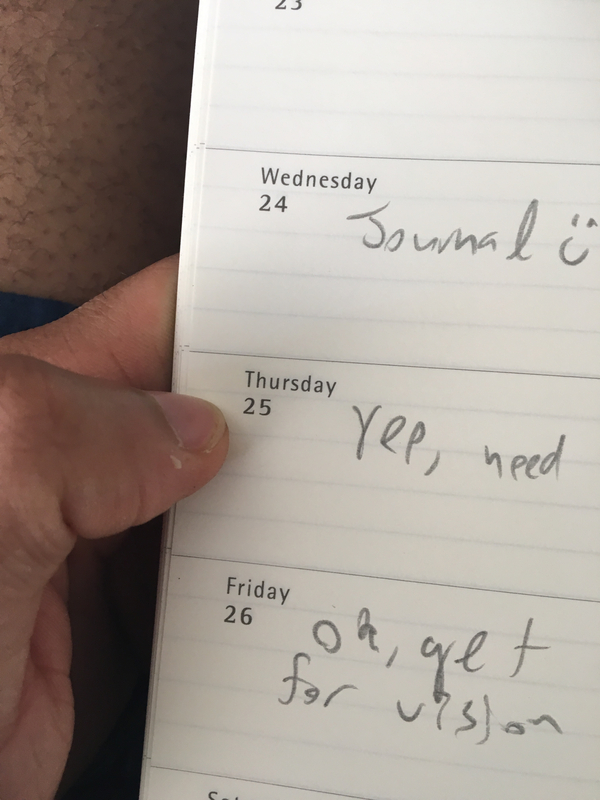 23
Wednesday
24
Journal :)
Thursday
25
Yep, need
Friday
26
Ok, get
for vision